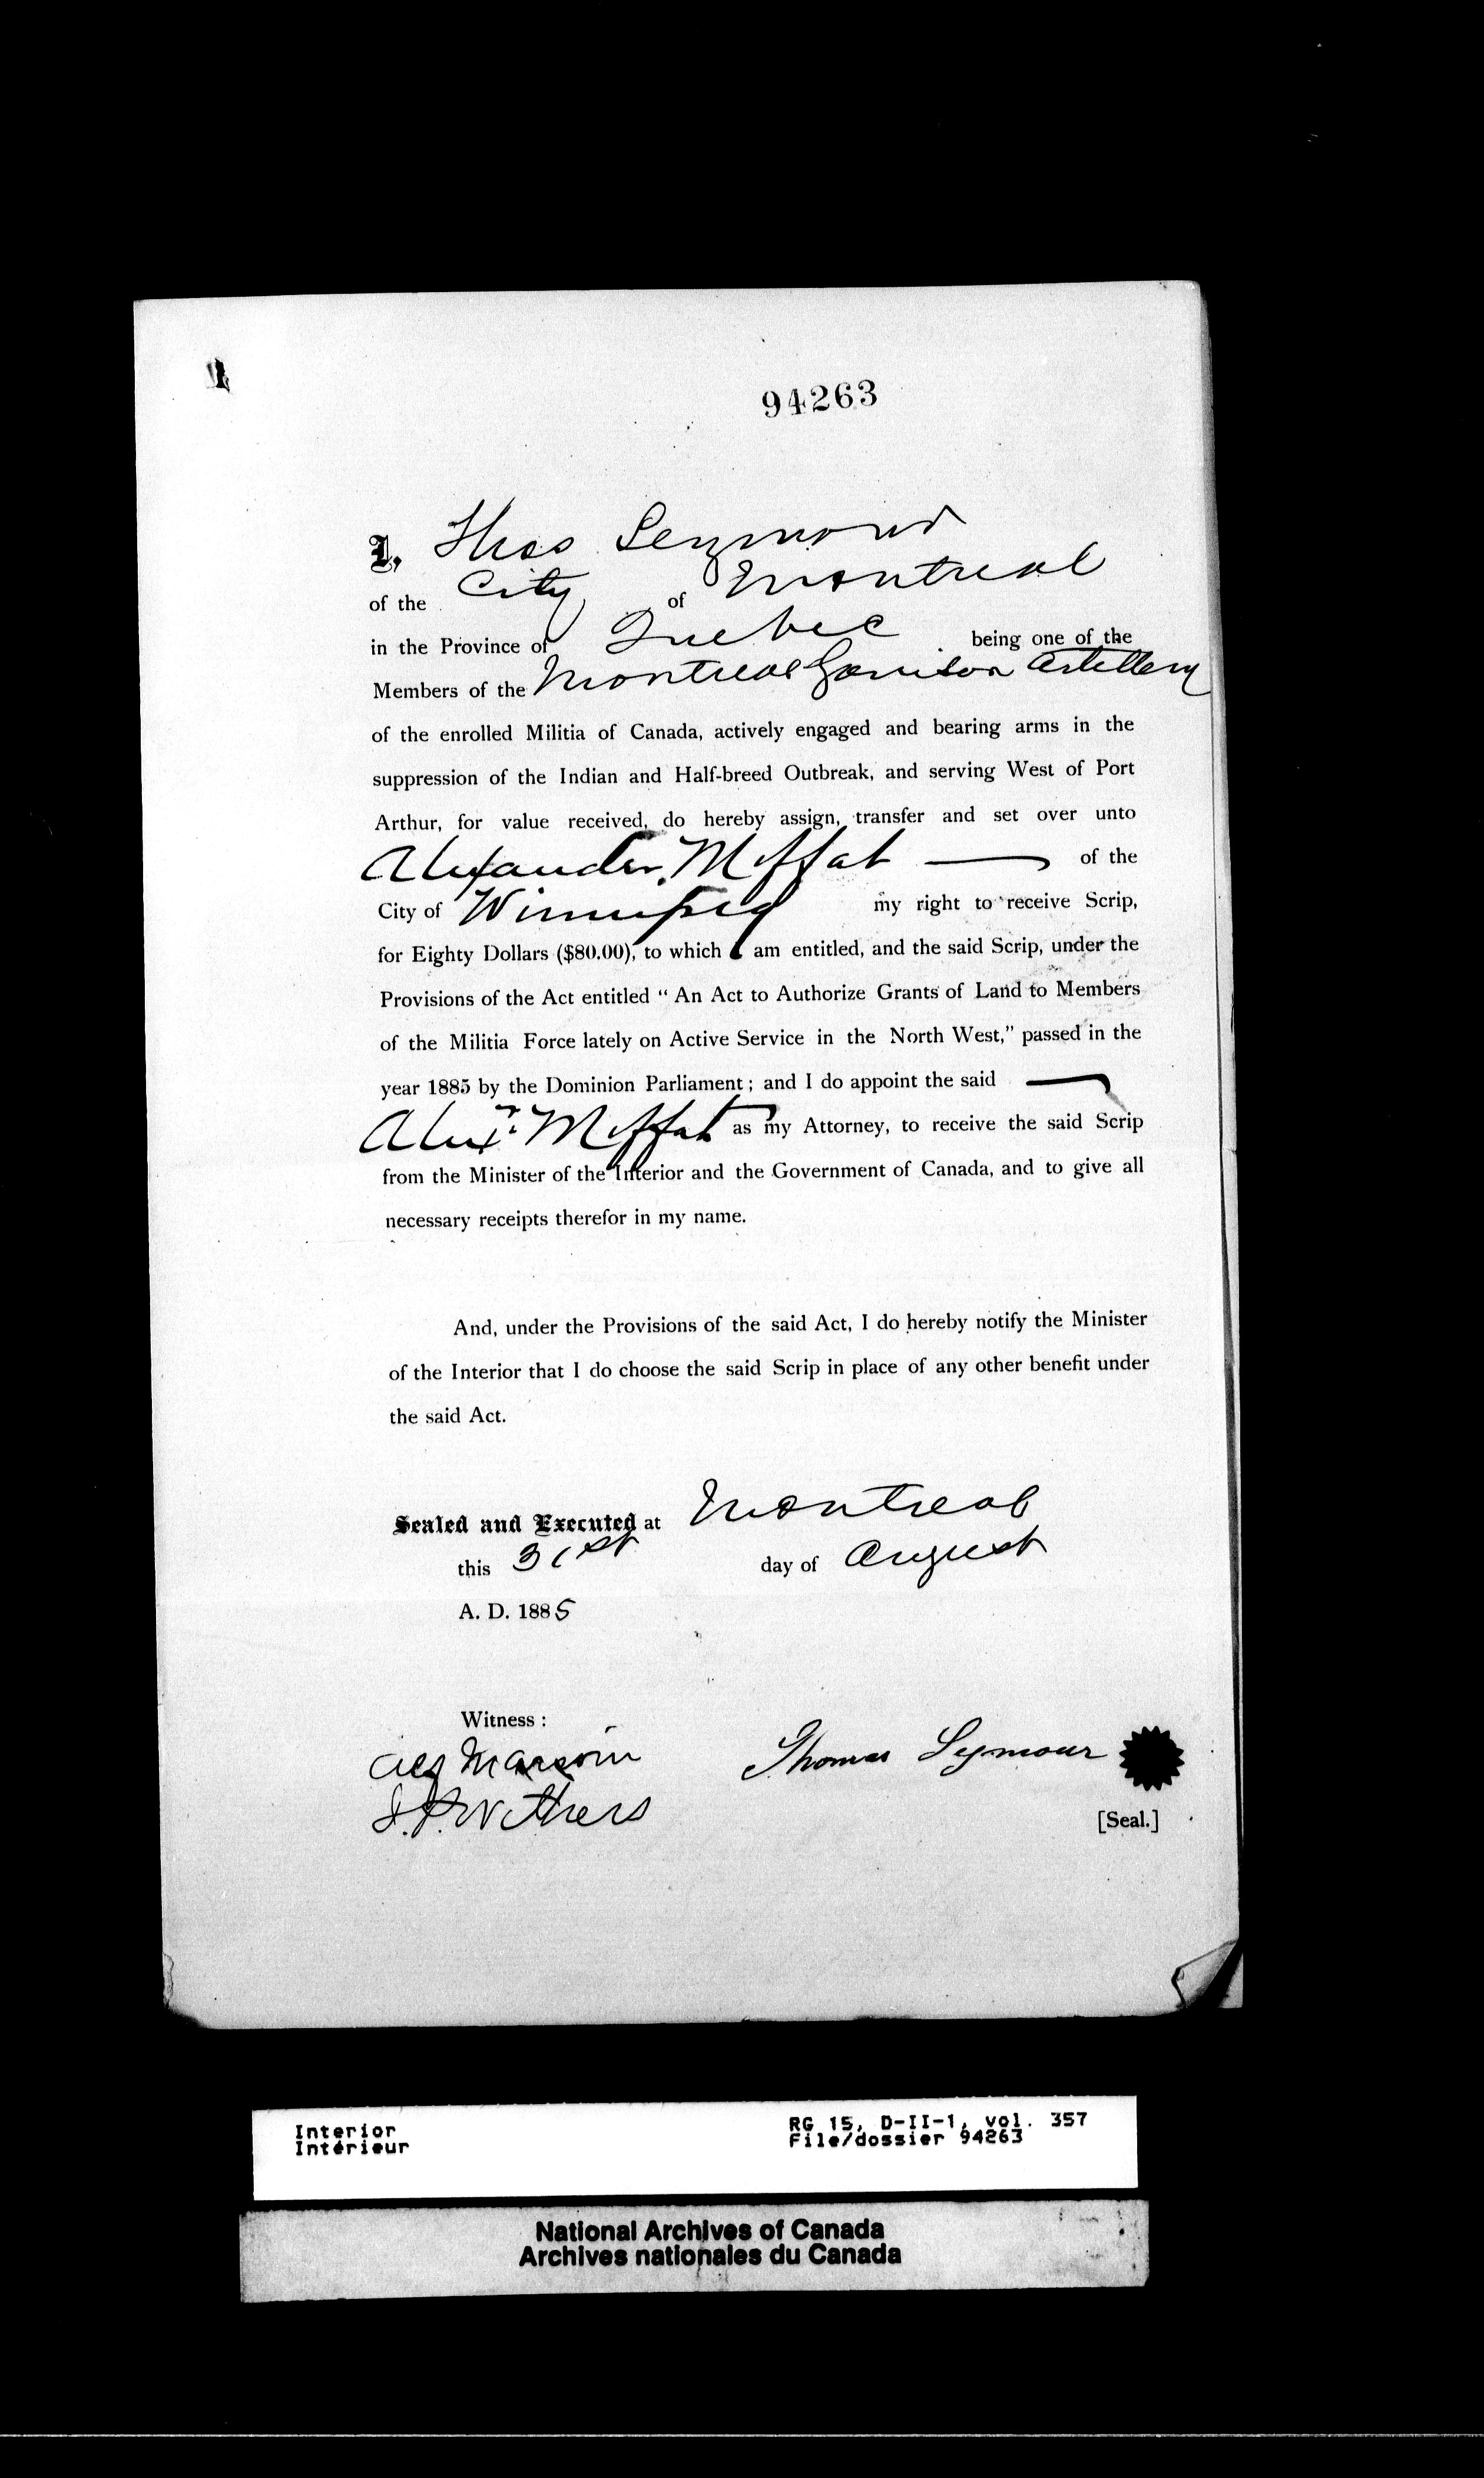 94263
I, Thos Seymour
of the City of Montreal
in the Province of Quebec being one of the
Members of the Montreal Garrison Artillery
of the enrolled Militia of Canada, actively engaged and bearing arms in the
suppression of the Indian and Half-breed Outbreak, and serving West of Port
Arthur, for value received, do hereby assign, transfer and set over unto
Alexander Moffat — of the
City of Winnipeg my right to receive Scrip,
for Eighty Dollars ($80.00), to which I am entitled, and the said Scrip, under the
Provisions of the Act entitled “ An Act to Authorize Grants of Land to Members
of the Militia Force lately on Active Service in the North West,” passed in the
year 1885 by the Dominion Parliament ; and I do appoint the said —
Alexr. Moffat as my Attorney, to receive the said Scrip
from the Minister of the Interior and the Government of Canada, and to give all
necessary receipts therefor in my name.
And, under the Provisions of the said Act, I do hereby notify the Minister
of the Interior that I do choose the said Scrip in place of any other benefit under
the said Act.
Sealed and Executed at Montreal
this 31st day of August
A. D. 1885
Witness :
Thomas Seymour
Withers
[Seal.]
Interior
Intérieur
RG 15, D-II-1, vol. 357
File/dossier 94263
National Archives of Canada
Archives nationales du Canada